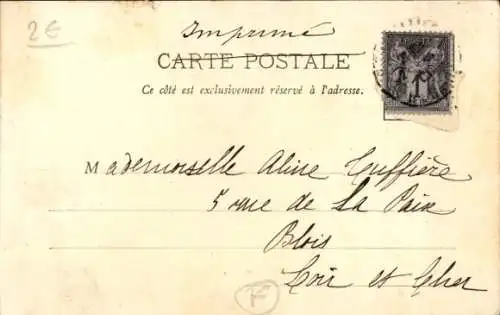 2€
Imprimé
CARTE POSTALE
Ce côté est exclusivement réservé à l'adresse.
Mademoiselle Aline Cuffière
5 rue de La Paix
Blois
Loir et Cher
F